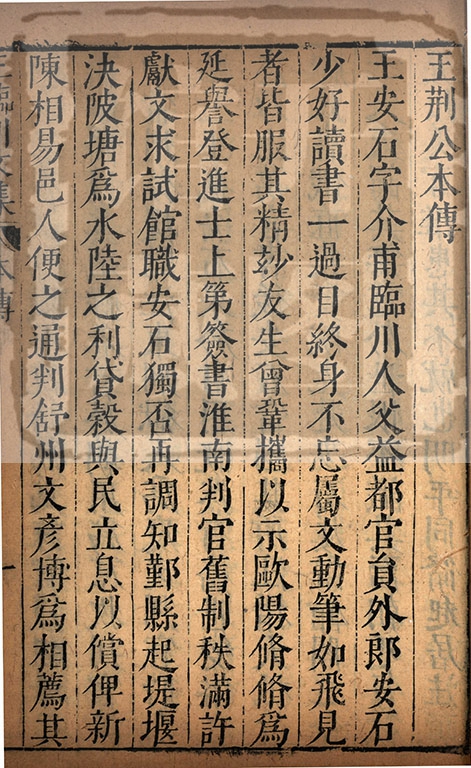 王荆公本傳
王安石字介甫臨川人父益都官員外郎安石
少好讀書一過目終身不忘屬文動筆如飛見
者皆服其精玅友生曾鞏攜以示歐陽脩脩爲
延譽登進士上第簽書淮南判官舊制秩滿許
獻文求試館職安石獨否再調知鄞縣起堤堰
決陂塘爲水陸之利貸穀與民立息以償俾新
陳相易邑人便之通判舒州文彥博爲相薦其
王臨川文集 本傳
一